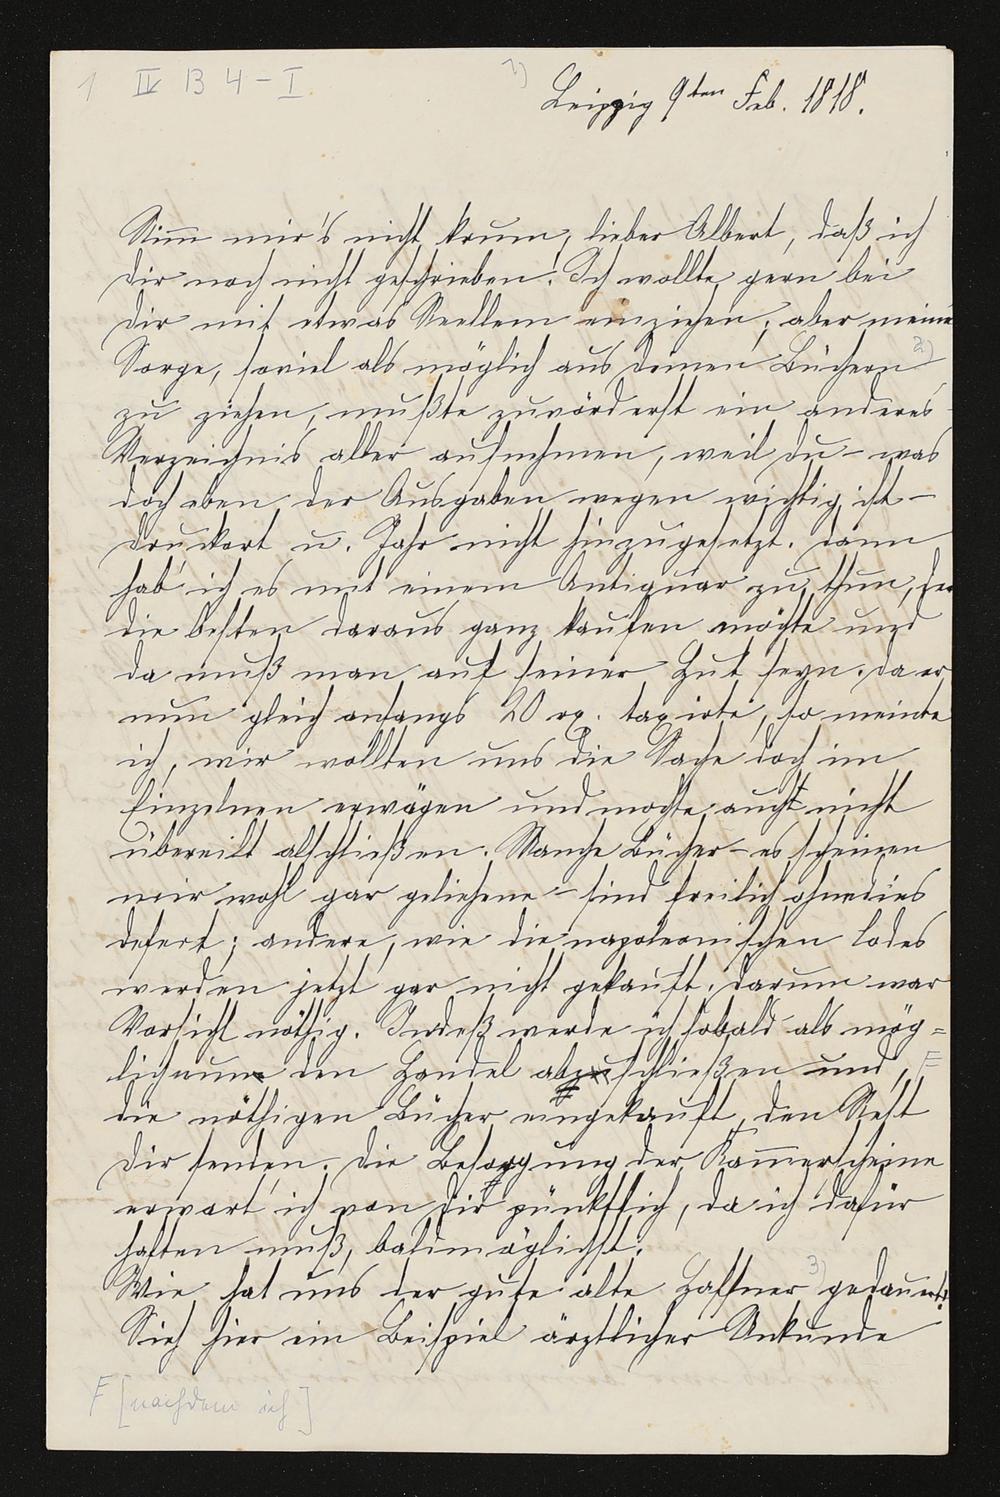 1 IV B 4 - I
1)
Leipzig 9ten Feb. 1818.
Nimm mir's nicht krum, lieber Albert, daß ich
dir noch nicht geschrieben! Ich wollte gern bei
dir mit etwas Reellem einziehen; aber meine
Sorge, soviel als möglich aus deinen Büchern 2)
zu ziehen, mußte zuvörderst ein anderes
Verzeichnis aller aufnehmen, weil du - was
doch eben der Ausgaben wegen wichtig ist -
Druckort u. Jahr nicht hinzugesetzt. Dann
hab' ich es mit einem Antiquar zu thun, der
die besten daraus ganz kaufen möchte und
da muß man auf seiner Hut seyn. Da er
nun gleich anfangs 20 rx. taxirte, so meinte
ich, wir wollten uns die Sache doch im
Einzelnen erwägen und mochte auch nicht
übereilt abschließen. Manche Bücher - es scheinen
mir wohl gar geliehene - sind freilich ohnedies
defect; andere, wie die napoleonischen Codes
werden jetzt gar nicht gekauft; darum war
Vorsicht nöthig. Indeß werde ich sobald als mög=
lich nun den Handel abschließen und, F
die nöthigen Bücher eingekauft, den Rest
dir senden. Die Besorgung der Kammerscheine
erwart' ich von dir pünktlich, da ich dafür
haften muß, baldmöglichst.
Wie hat uns der gute alte Haffner 3) gedauert!
Sieh hier ein Beispiel ärztlicher Unkunde
F [nachdem ich]